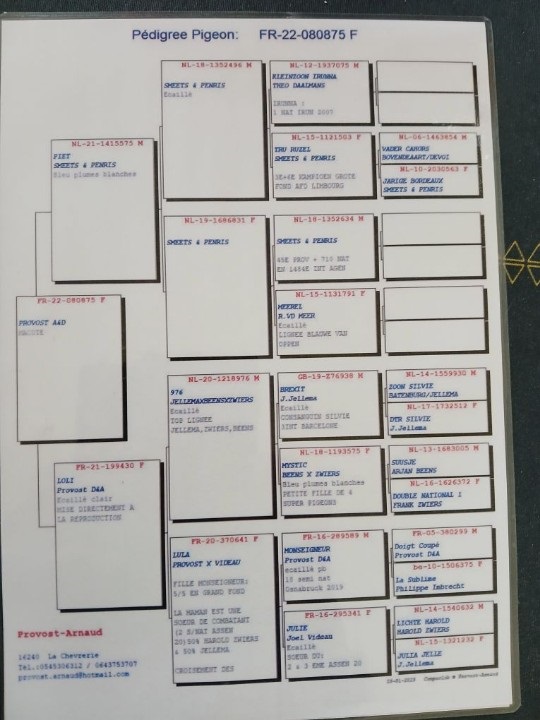 Pédigree Pigeon: FR-22-080875 F
FR-22-080875 F
PROVOST A&D
NL-21-1415575 M
PIET
SMEETS & PENRIS
Bleu plumes blanches
FR-21-199430 F
LOLI
Provost D&A
Ecaillé clair
MISE DIRECTEMENT A
LA REPRODUCTION
NL-18-1352496 M
SMEETS & PENRIS
Ecaillé
NL-19-1686831 F
SMEETS & PENRIS
NL-20-1218976 M
976
JELLEMAXBEENSXIWIERS
Ecaillé
TOP LIGNEE
JELLEMA,IWIERS,BEENS
FR-20-370641 F
LULA
PROVOST X VIDEAU
FILLE MONSEIGNEUR:
5/5 EN GRAND FOND
LA MAMAN EST UNE
SOEUR DE COMBATANT
(2 S/NAT ASSEN
20)50% HAROLD ZWIERS
& 50% JELLEMA
CROISEMENT DES
NL-12-1937075 M
KLEINTOON IRUNNA
THEO DAALMANS
IRUNNA :
1 NAT IRUN 2007
NL-15-1121503 F
TRU RUZEL
SMEETS & PENRIS
3E+6E KAMPIOEN GROTE
FOND AFD LIMBOURG
NL-18-1352634 M
SMEETS & PENRIS
45E PROV + 713 NAT
EN 1484E INT AGEN
NL-15-1131791 F
MEEREL
R.VD MEER
Ecaillé
LIGNEE BLAUWE VAN
OPPEN
GB-19-Z76938 M
BREXIT
J.Jellema
Ecaillé
CONSANGUIN SILVIE
3INT BARCELONE
NL-18-1193575 F
MYSTIC
BEENS X ZWIERS
Bleu plumes blanches
PETITE FILLE DE 4
SUPER PIGEONS
FR-16-289589 M
MONSEIGNEUR
Provost D&A
ecaillé pb
13 semi nat
Osnabruck 2019
FR-16-295341 F
JULIE
Joel Videau
Ecaillé
SOEUR DU:
2 & 3 EME ASSEN 20
NL-06-1463654 M
VADER CAHORS
BOVENDEAART/DEVOI
NL-10-2030563 F
JARIGE BORDEAUX
SMEETS & PENRIS
NL-14-1559930 M
ZOON SILVIE
BATENBURG/JELLEMA
NL-17-1732512 F
DTR SILVIE
J.Jellema
NL-13-1683005 M
SUUSJE
ARJAN BEENS
NL-16-1626372 F
DOUBLE NATIONAL 1
FRANK ZWIERS
FR-05-380299 M
Doigt Coupé
Provost D&A
be-10-1506375 F
La Sublime
Philippe Imbrecht
NL-14-1540632 M
LICHTE HAROLD
HAROLD ZWIERS
NL-15-1321232 F
JULIA JELLE
J.Jellema
Provost-Arnaud
16240 La Chevrerie
Tél.:0545306312 / 0643753767
provost.arnaud@hotmail.com